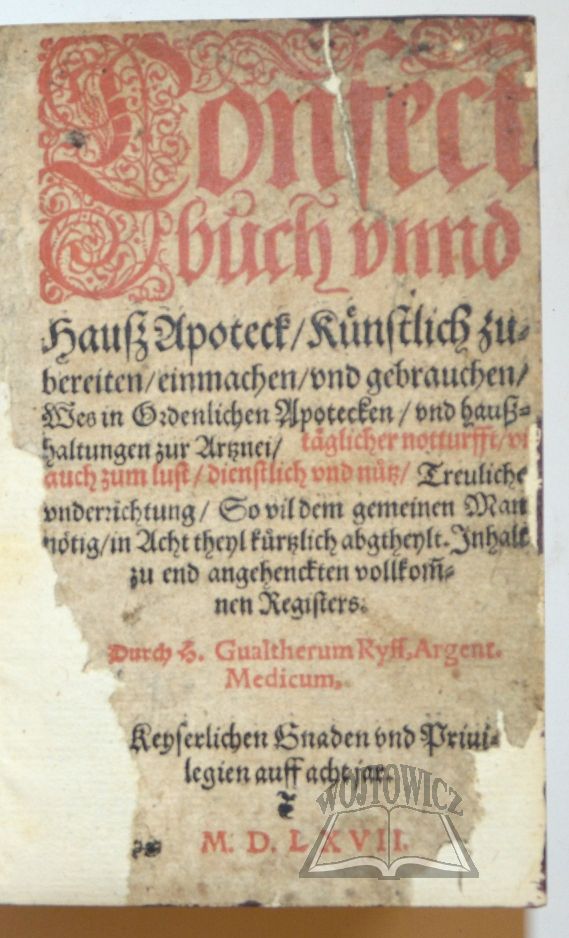 Confect
bůch vnnd
Hauſz Apoteck/Kůnſtlich zu⸗
bereiten/einmachen/vnd gebrauchen/
Wes in Ordenlichen Apotecken/vnd hauſz⸗
haltungen zur Artznei/ täglicher notturfft/vñ
auch zum luſt/dienſtlich vnd nütz/ Treuliche
vnderrichtung/ So vil dem gemeinen Man
nötig/in Acht theyl kürtzlich abgtheylt. Inhalt
zu end angehenckten vollkom̃⸗
nen Regiſters.
Durch H. Gualtherum Ryff, Argent.
Medicum.
Keyſerlichen Gnaden vnd Priui⸗
legien auff acht jar.
M. D. LXVII.
WÓJTOWICZ